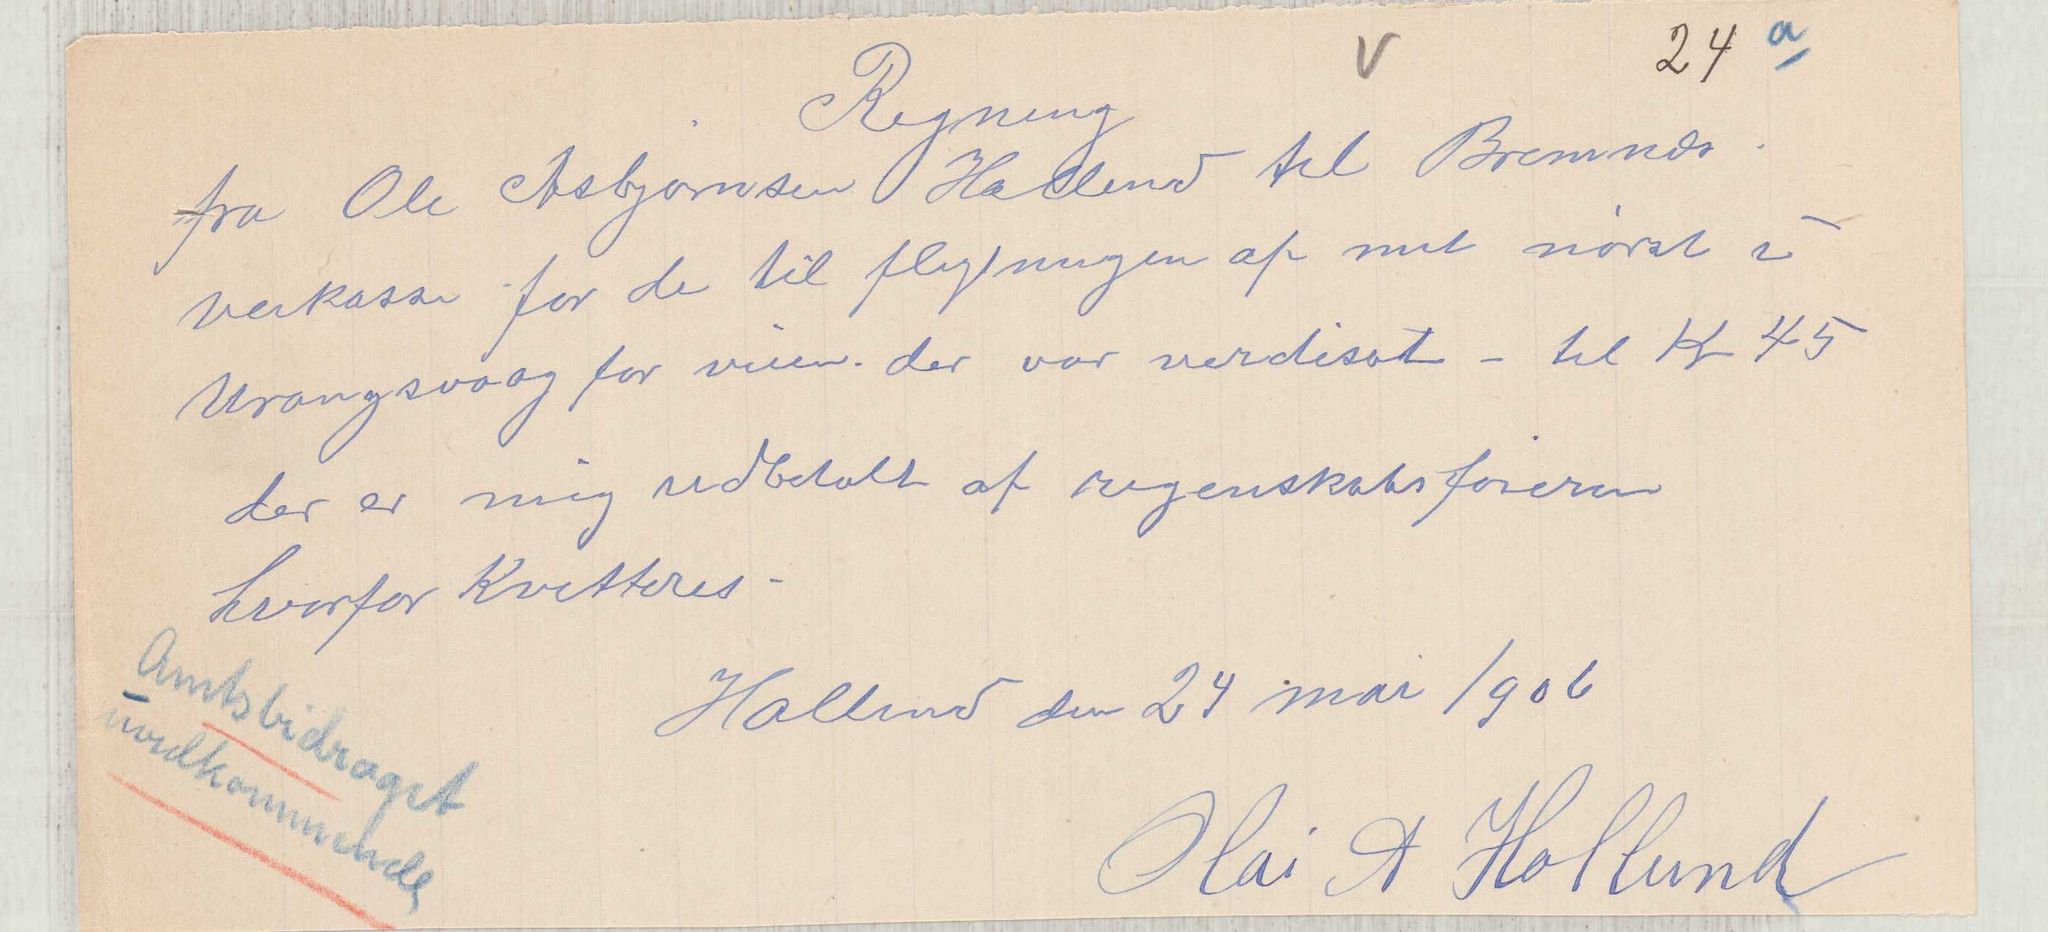 V
24 a
Regning
fra Ole Asbjørnsen Hallend til Bremnæs
veikasse for de til flyningen af mit nørst i
Urangsvaag for veien. der var verdisat - til Kr 45
der er mig udbetalt af regenskabsføreren
hvorfor Kvitteres -
Hallend den 24 mai 1906
Olai A Hollund
Amtsbidraget
uvedkommende